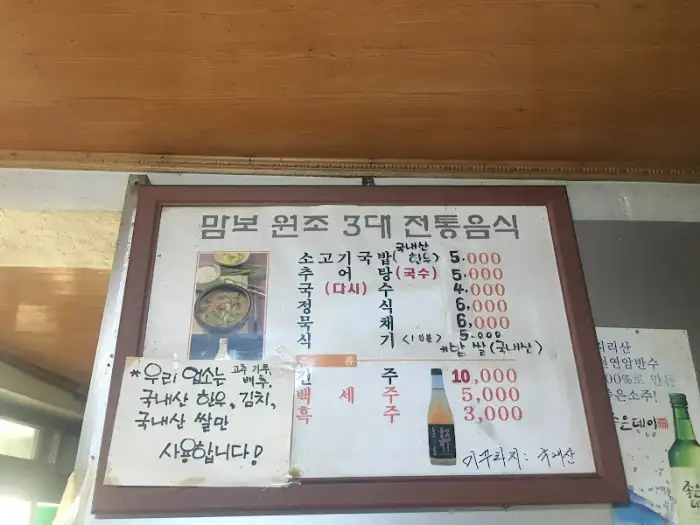 맘보 원조 3대 전통음식
소고기국밥(국내산 한우) 5.000
추어탕(국수) 5.000
국(다시)수 4.000
정식 6,000
묵채 6,000
식기(1인분) 5.000
*쌀(국내산)
류
주 10,000
백세주 5,000
흑주 3,000
미꾸라지: 국내산
*우리 업소는 고추가루, 배추,
국내산 한우, 김치,
국내산 쌀만
사용합니다!
리산
천연암반수
00%로 만든
좋은소주!
좋은데이
좋은
데이